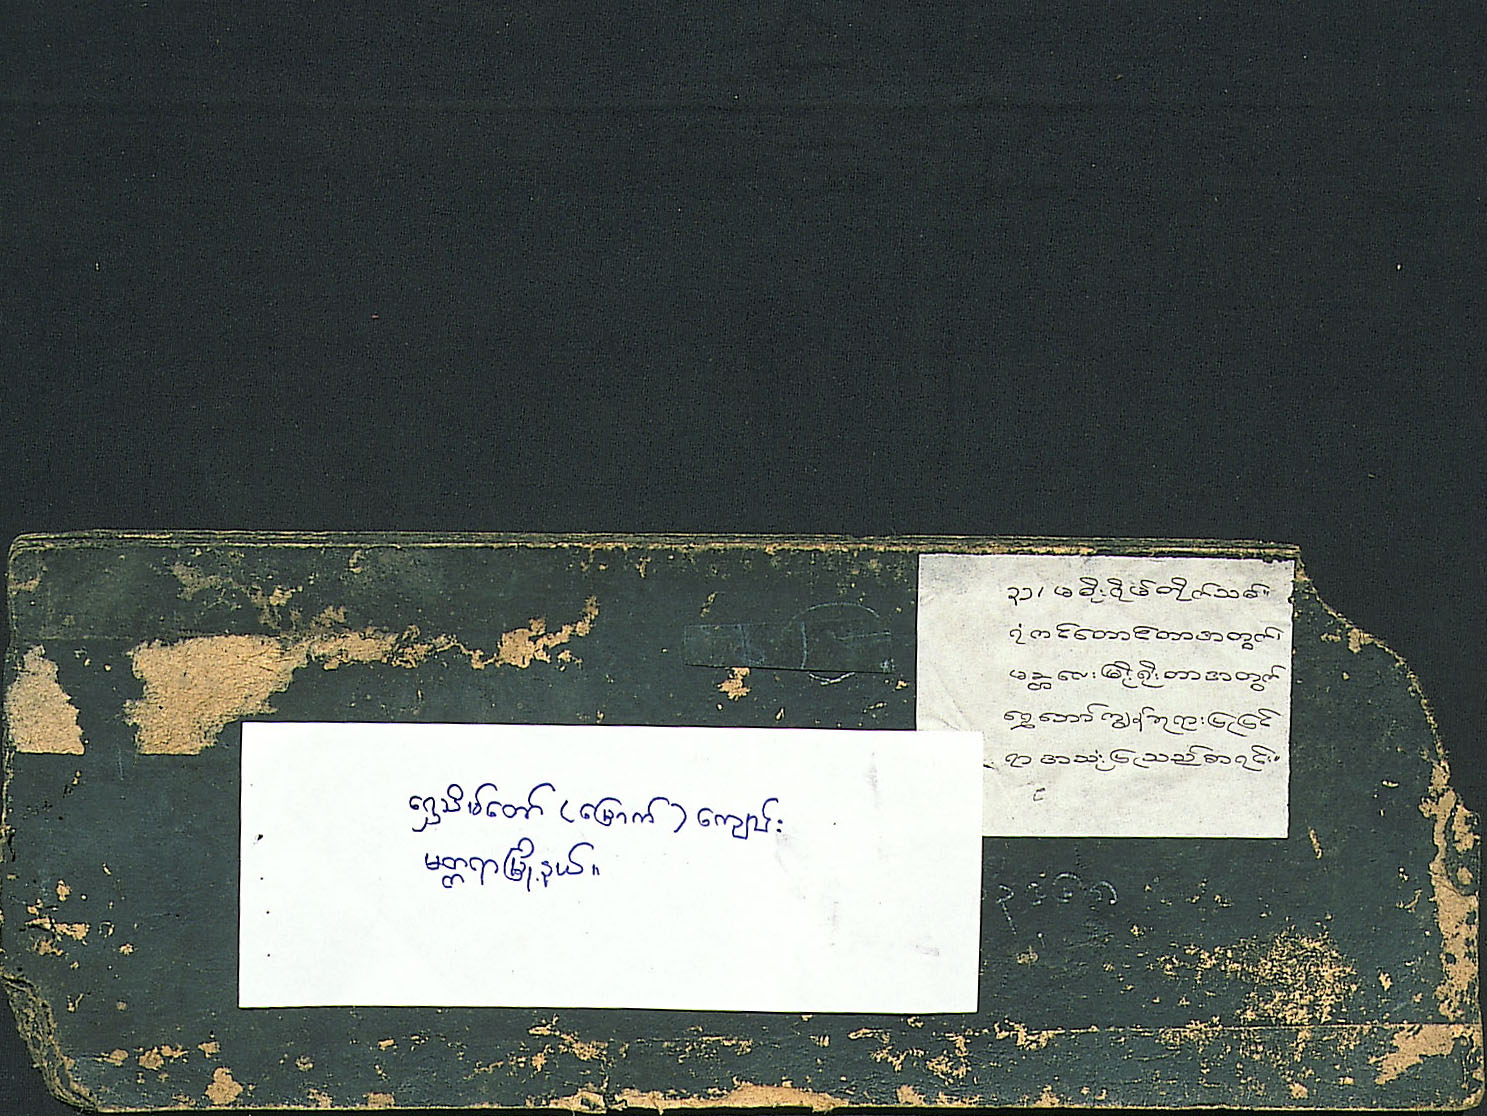 ၃၁/ မစိုးစိုမ်တိုက်သစ်။
ရုံကင်တောင်တာအတွက်၊
မန္တလေးမြို့ရိုးတာအတွက်
ရွှေတော်ကျွန်ဘုရားပြုပြင်
ရာ အသုံးပြုသည့်စာရင်း။
ရွှေသိမ်တော် (မြောက်) ကျောင်း
မတ္တရာမြို့နယ်။